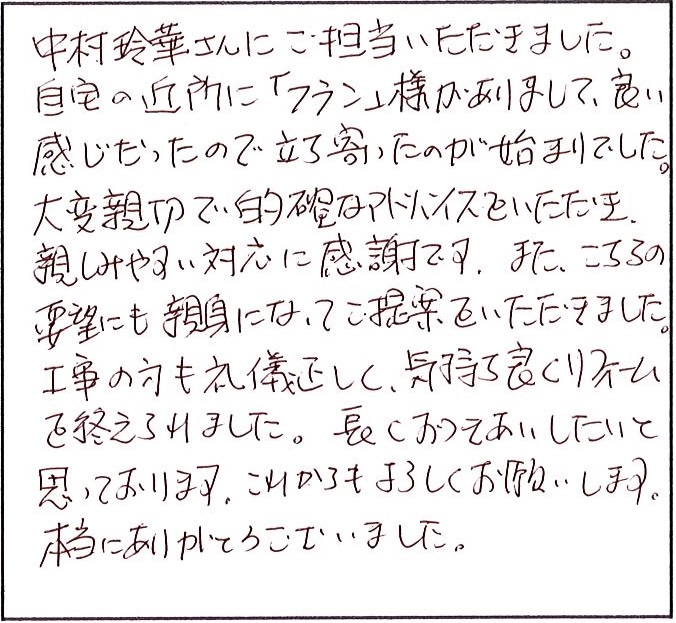 中村玲華さんにご担当いただきました。
自宅の近所に「フラン」様がありまして、良い
感じだったので立ち寄ったのが始まりでした。
大変親切で的確なアドバイスをいただき、
親しみやすい対応に感謝です。また、こちらの
要望にも親身になってご提案をいただきました。
工事の方も礼儀正しく、気持ち良くリフォーム
を終えられました。長くおつきあいしたいと
思っております。これからもよろしくお願いします。
本当にありがとうございました。